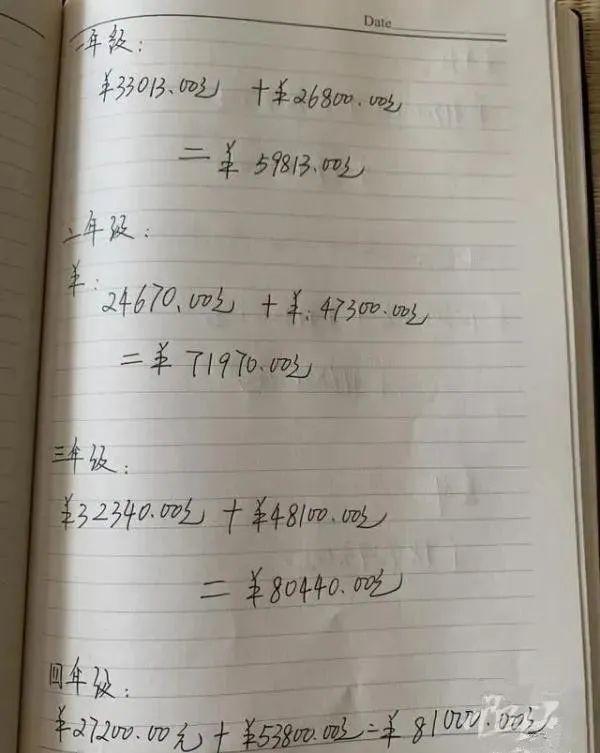 Date
一年级：
¥33013.00元 +¥26800.00元
=¥ 59813.00元
二年级：
¥：24670.00元 +¥：47300.00元
=¥ 71970.00元
三年级：
¥32340.00元 +¥48100.00元
=¥80440.00元
四年级：
¥27200.00元 +¥53800.00元=¥81000.00元